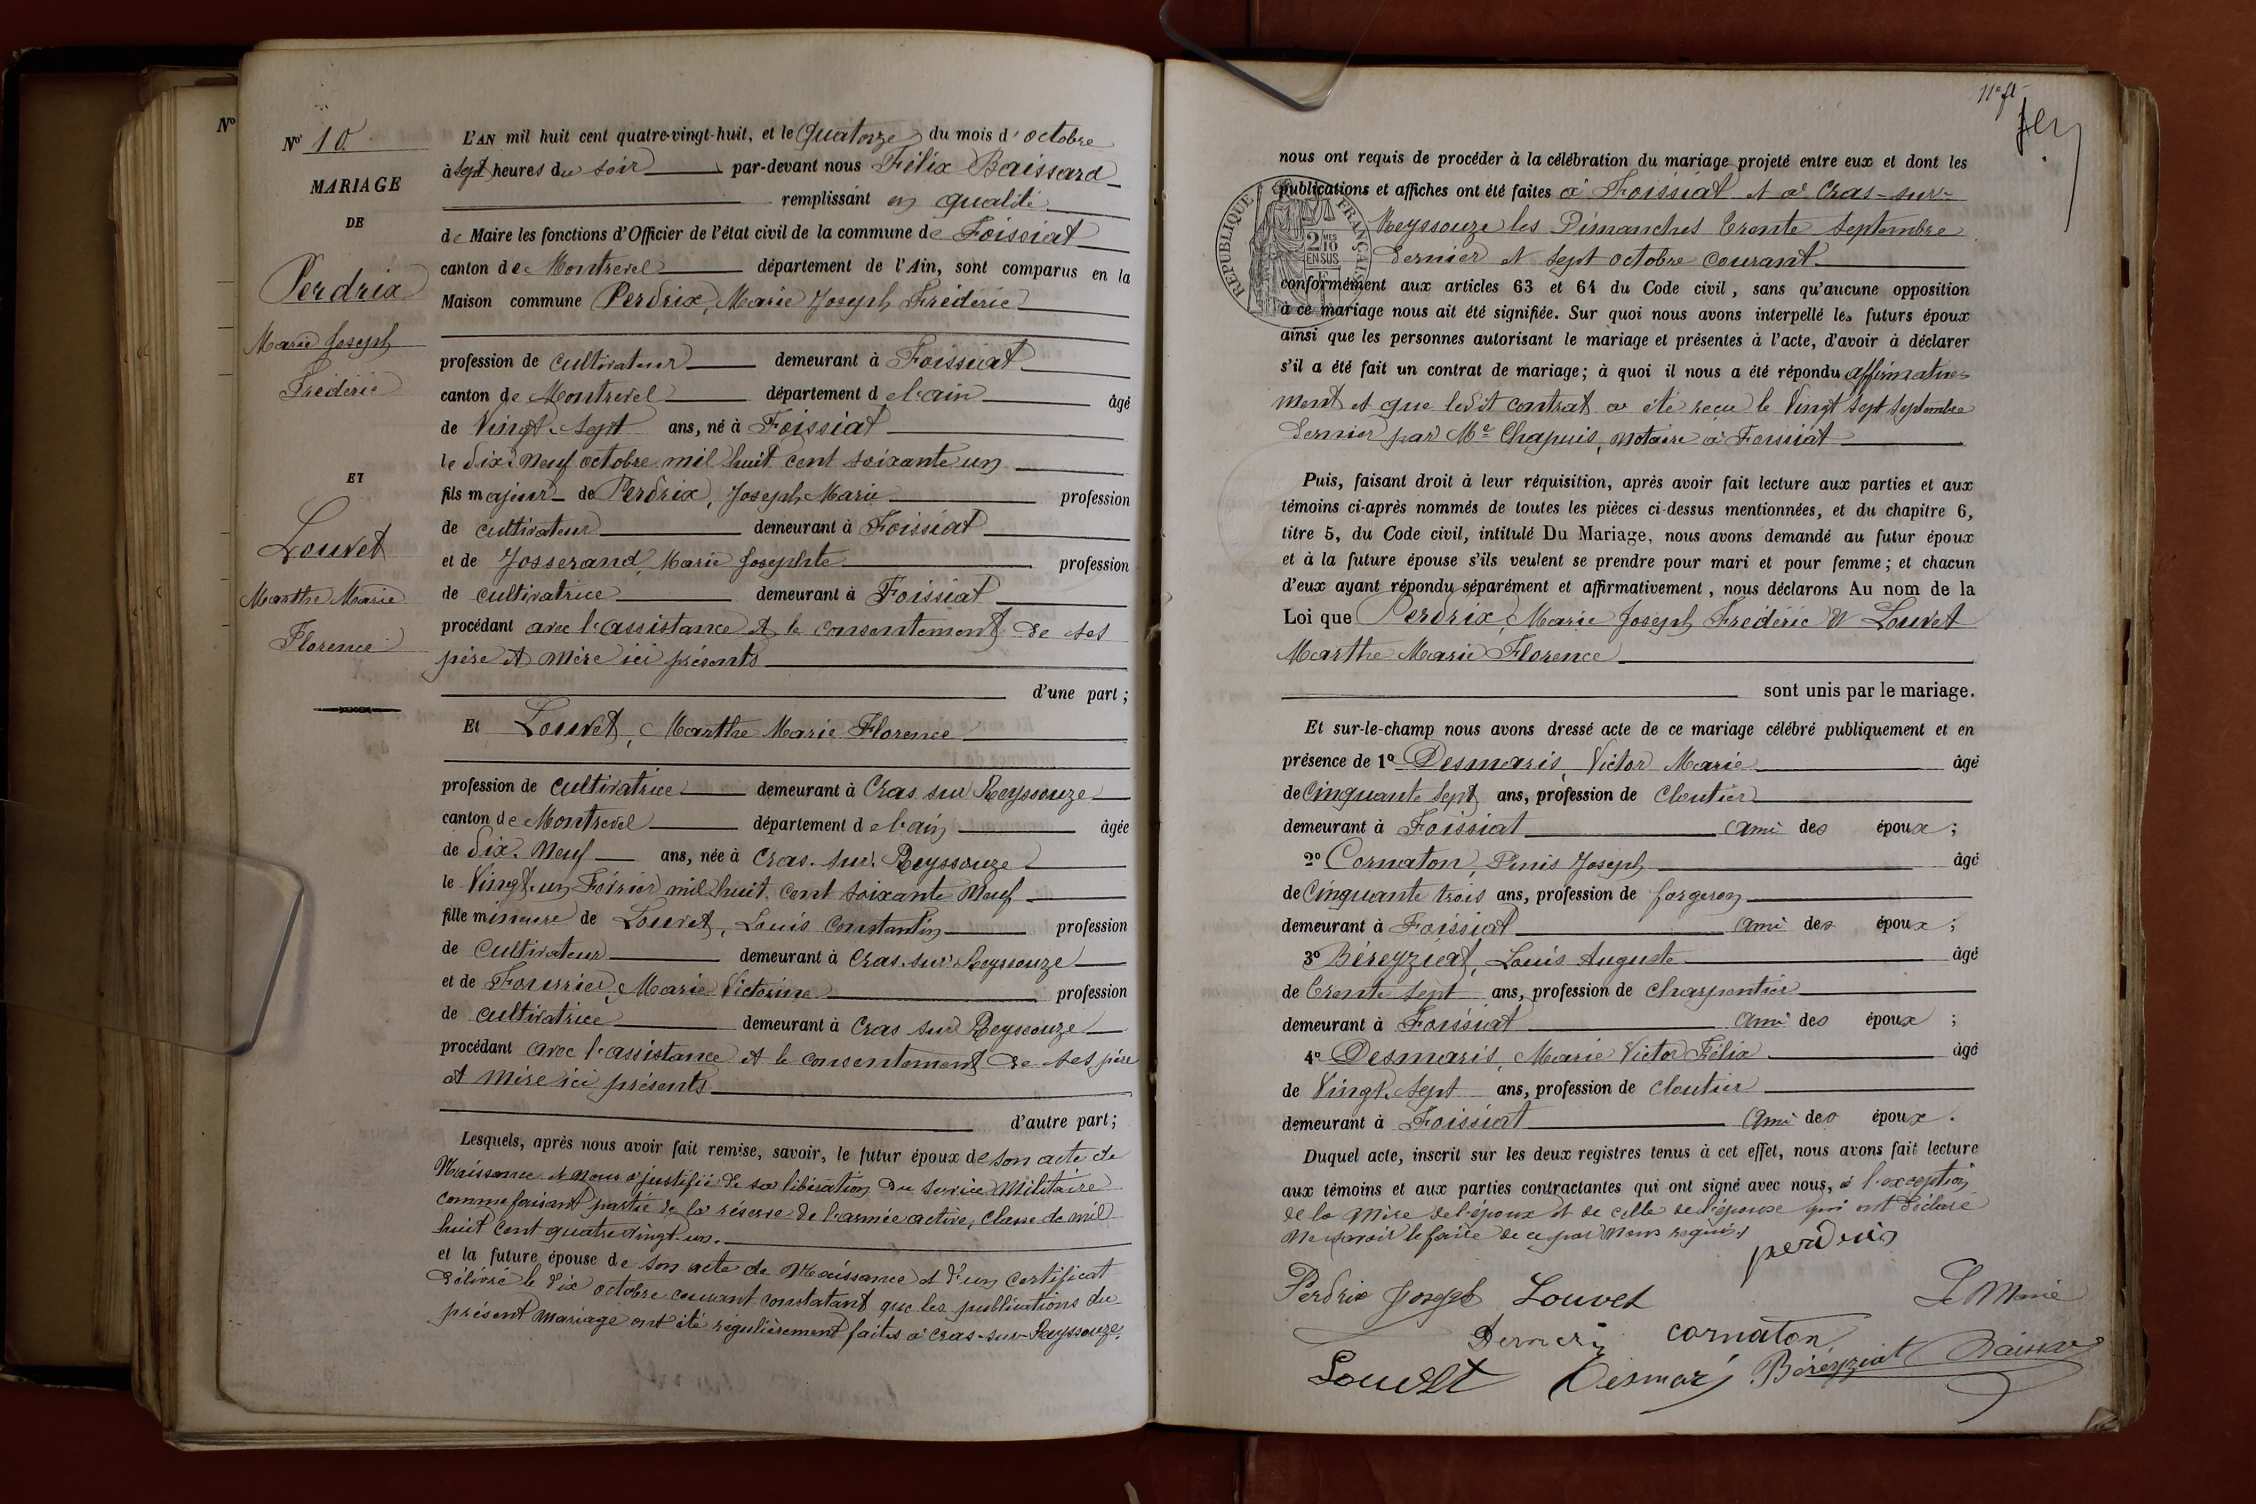 Nº
Nº 10
MARIAGE
DE
Perdrix
Marie Joseph
Frédéric
ET
Louvet
Marthe Marie
Florence
L'AN mil huit cent quatre-vingt-huit, et le Quatorze du mois d'octobre
à sept heures du soir par-devant nous Félix Baissard
remplissant en qualité
de Maire les fonctions d'Officier de l'état civil de la commune de Foissiat
canton de Montrevel département de l'Ain, sont comparus en la
Maison commune Perdrix, Marie Joseph Frédéric
profession de cultivateur demeurant à Foissiat
canton de Montrevel département de l'ain âgé
de Vingt-Sept ans, né à Foissiat
le dix-neuf octobre mil huit cent soixante un
fils majeur de Perdrix, Joseph Marie profession
de cultivateur demeurant à Foissiat
et de Josserand, Marie Josephte profession
de cultivatrice demeurant à Foissiat
procédant avec l'assistance et le consentement de ses
père et mère ici présents
d'une part ;
Et Louvet, Marthe Marie Florence
profession de cultivatrice demeurant à Cras sur Reyssouze
canton de Montrevel département de l'ain âgée
de Dix-Neuf ans, née à Cras-sur-Reyssouze
le Vingt-un Février mil huit cent soixante Neuf
fille mineure de Louvet, Louis Constantin profession
de cultivateur demeurant à Cras-sur-Reyssouze
et de Fourrier, Marie Victorine profession
de cultivatrice demeurant à Cras sur Reyssouze
procédant avec l'assistance et le consentement de ses père
et Mère ici présents
d'autre part ;
Lesquels, après nous avoir fait remise, savoir, le futur époux de son acte de
Naissance et nous a justifié de sa libération du service Militaire
comme faisant partie de la réserve de l'armée active, classe de mil
huit cent quatre-vingt-un.
et la future épouse de son acte de Naissance et d'un certificat
délivré le dix octobre courant constatant que les publications du
présent mariage ont été régulièrement faites à Cras-sur-Reyssouze.
nous ont requis de procéder à la célébration du mariage projeté entre eux et dont les
publications et affiches ont été faites à Foissiat et à Cras-sur-
Reyssouze les Dimanches trente septembre
dernier et sept octobre courant
conformément aux articles 63 et 64 du Code civil, sans qu'aucune opposition
à ce mariage nous ait été signifiée. Sur quoi nous avons interpellé les futurs époux
ainsi que les personnes autorisant le mariage et présentes à l'acte, d'avoir à déclarer
s'il a été fait un contrat de mariage ; à quoi il nous a été répondu affirmative-
ment et que ledit contrat a été reçu le Vingt sept septembre
dernier par Me Chapuis, notaire à Foissiat
RÉPUBLIQUE FRANÇAISE
2 MES 10
EN SUS
Puis, faisant droit à leur réquisition, après avoir fait lecture aux parties et aux
témoins ci-après nommés de toutes les pièces ci-dessus mentionnées, et du chapitre 6,
titre 5, du Code civil, intitulé Du Mariage, nous avons demandé au futur époux
et à la future épouse s'ils veulent se prendre pour mari et pour femme ; et chacun
d'eux ayant répondu séparément et affirmativement, nous déclarons Au nom de la
Loi que Perdrix, Marie Joseph Frédéric et Louvet
Marthe Marie Florence
sont unis par le mariage.
Et sur-le-champ nous avons dressé acte de ce mariage célébré publiquement et en
présence de 1º Desmaris, Victor Marie âgé
de Cinquante Sept ans, profession de Cloutier
demeurant à Foissiat ami des époux ;
2º Cornaton, Denis Joseph âgé
de Cinquante trois ans, profession de forgeron
demeurant à Foissiat ami des époux ;
3º Béreyziat, Louis Auguste âgé
de Trente Sept ans, profession de Charpentier
demeurant à Foissiat ami des époux ;
4º Desmaris, Marie Victor Félix âgé
de Vingt-Sept ans, profession de Cloutier
demeurant à Foissiat ami des époux.
Duquel acte, inscrit sur les deux registres tenus à cet effet, nous avons fait lecture
aux témoins et aux parties contractantes qui ont signé avec nous, à l'exception
de la Mère de l'époux et de celle de l'épouse qui ont déclaré
ne savoir le faire de ce par Nous requis
perdrix
Perdrix Joseph Louvet Le Maire
cornaton
Louvet Desmaris Béréyziat Baissard